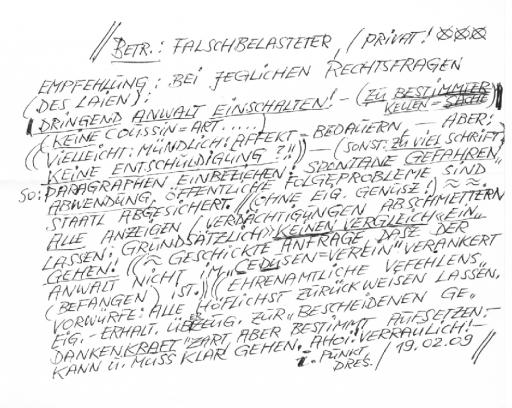 // BETR.: FALSCHBELASTETER / PRIVAT!
EMPFEHLUNG: BEI JEGLICHEN RECHTSFRAGEN
(DES LAIEN):
DRINGEND ANWALT EINSCHALTEN! - (ZU BESTIMMTER
KELLEN-SACHE)
(KEINE COUSSIN-ART.....)
(VIELLEICHT: MÜNDLICH: AFFEKT - BEDAUERN - ABER:
KEINE ENTSCHÜLDIGUNG?"!) - (SONST: ZU VIEL SCHRIFT)
SO: PARAGRAPHEN EINBEZIEHEN: SPONTANE GEFAHREN,
ABWENDUNG, ÖFFENTLICHE FOLGEPROBLEME SIND
STAATL. ABGESICHERT. (OHNE EIG. GENÜSZ!)
ALLE ANZEIGEN (VERDÄCHTIGUNGEN ABSCHMETTERN
LASSEN: GRÜNDSÄTZLICH) KEINEN VERGLEICH "EIN"
GEHEN. (GESCHICKTE ANFRAGE DASZ DER
ANWALT NICHT IM "-VEREIN" VERANKERT
(BEFANGEN) IST.) (EHRENAMTLICHE VEFEHLENS,
VORWÜRFE: ALLE HÖFLICHST ZÜRÜCKWEISEN LASSEN,
EIG.-ERHALT. ZÜR "BESCHEIDENEN GE,
DANKENKRAFT" ZART ABER BESTIMMT AUFSETZEN.-
KANN U. MUSS KLAR GEHEN. AHOI: VERRAULICH!-
PÜNKT
DRES. / 19.02.09 //